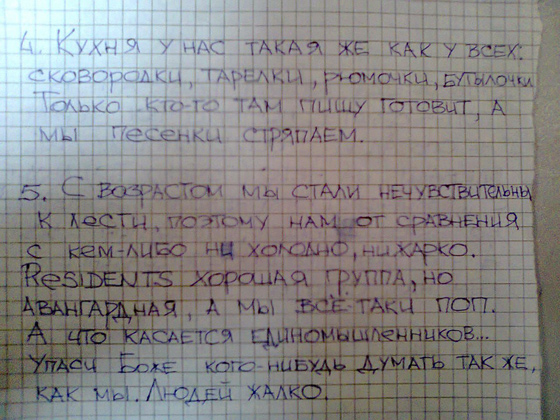 4. Кухня у нас такая же как у всех:
сковородки, тарелки, рюмочки, бутылочки
Только кто-то там пищу готовит, а
мы песенки стряпаем.
5. С возрастом мы стали нечувствительны
к лести, поэтому нам от сравнения
с кем-либо ни холодно, ни жарко.
Residents хорошая группа, но
авангардная, а мы всё-таки поп.
А что касается единомышленников...
Упаси Боже кого-нибудь думать так же,
как мы. Людей жалко.